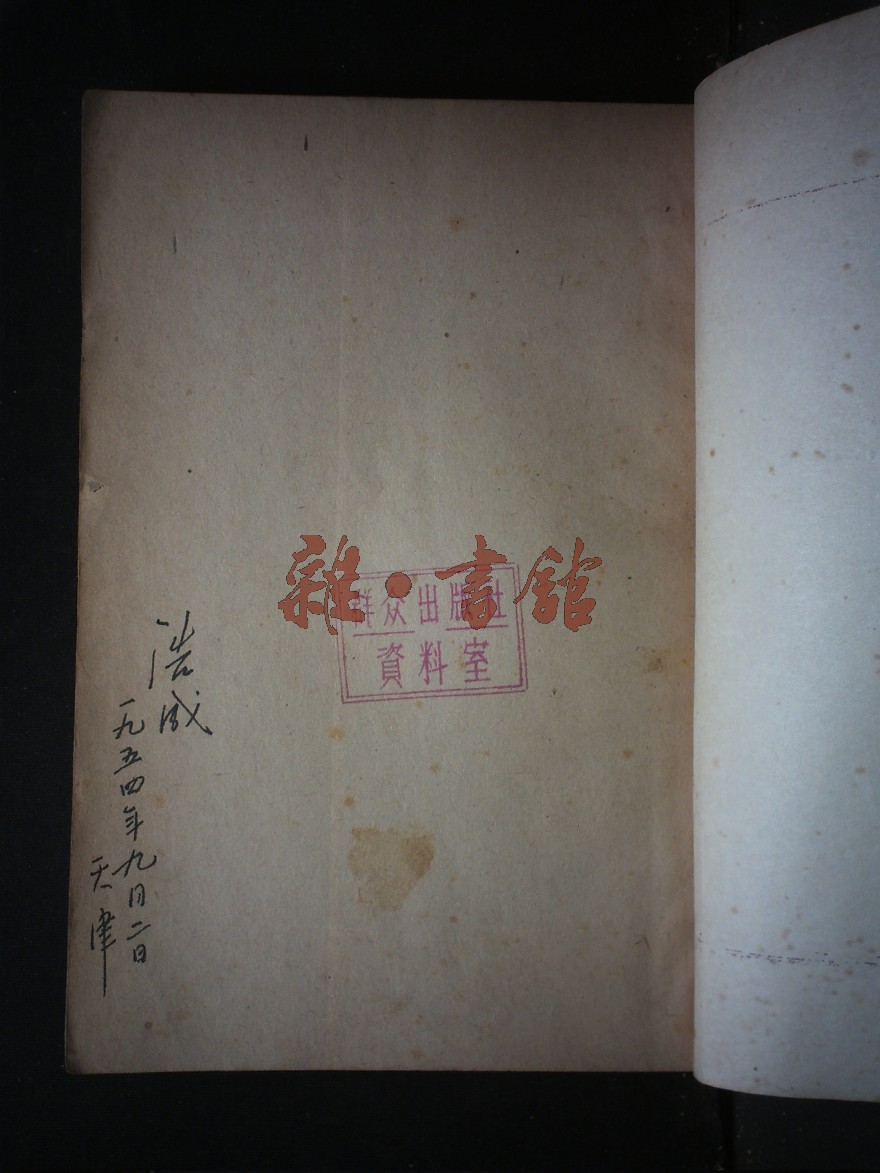 雜·書館
群众出版社
資料室
浩成
一九五四年九月二日
天津